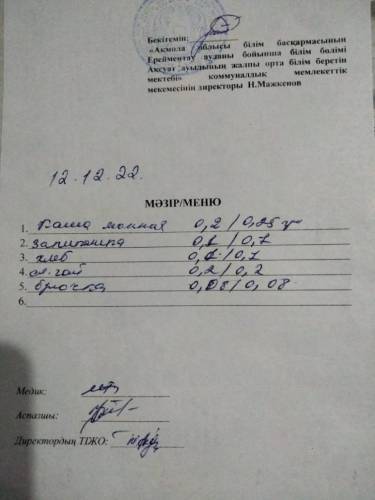 Бекітемін:
«Ақмола облысы білім басқармасының
Ерейментау ауданы бойынша білім бөлімі
Ақсуат ауылының жалпы орта білім беретін
мектебі» коммуналдық мемлекеттік
мекемесінің директоры Н.Мажкенов
12.12.22.
МӘЗІР/МЕНЮ
1. Каша манная 0,2/0,25 гр
2. запиханка 0,1/0,1
3. хлеб 0,1/0,1
4. сл. чай 0,2/0,2
5. булочка 0,08/0,08
6.
Медик:
Аспазшы:
Директордың ТІЖО: